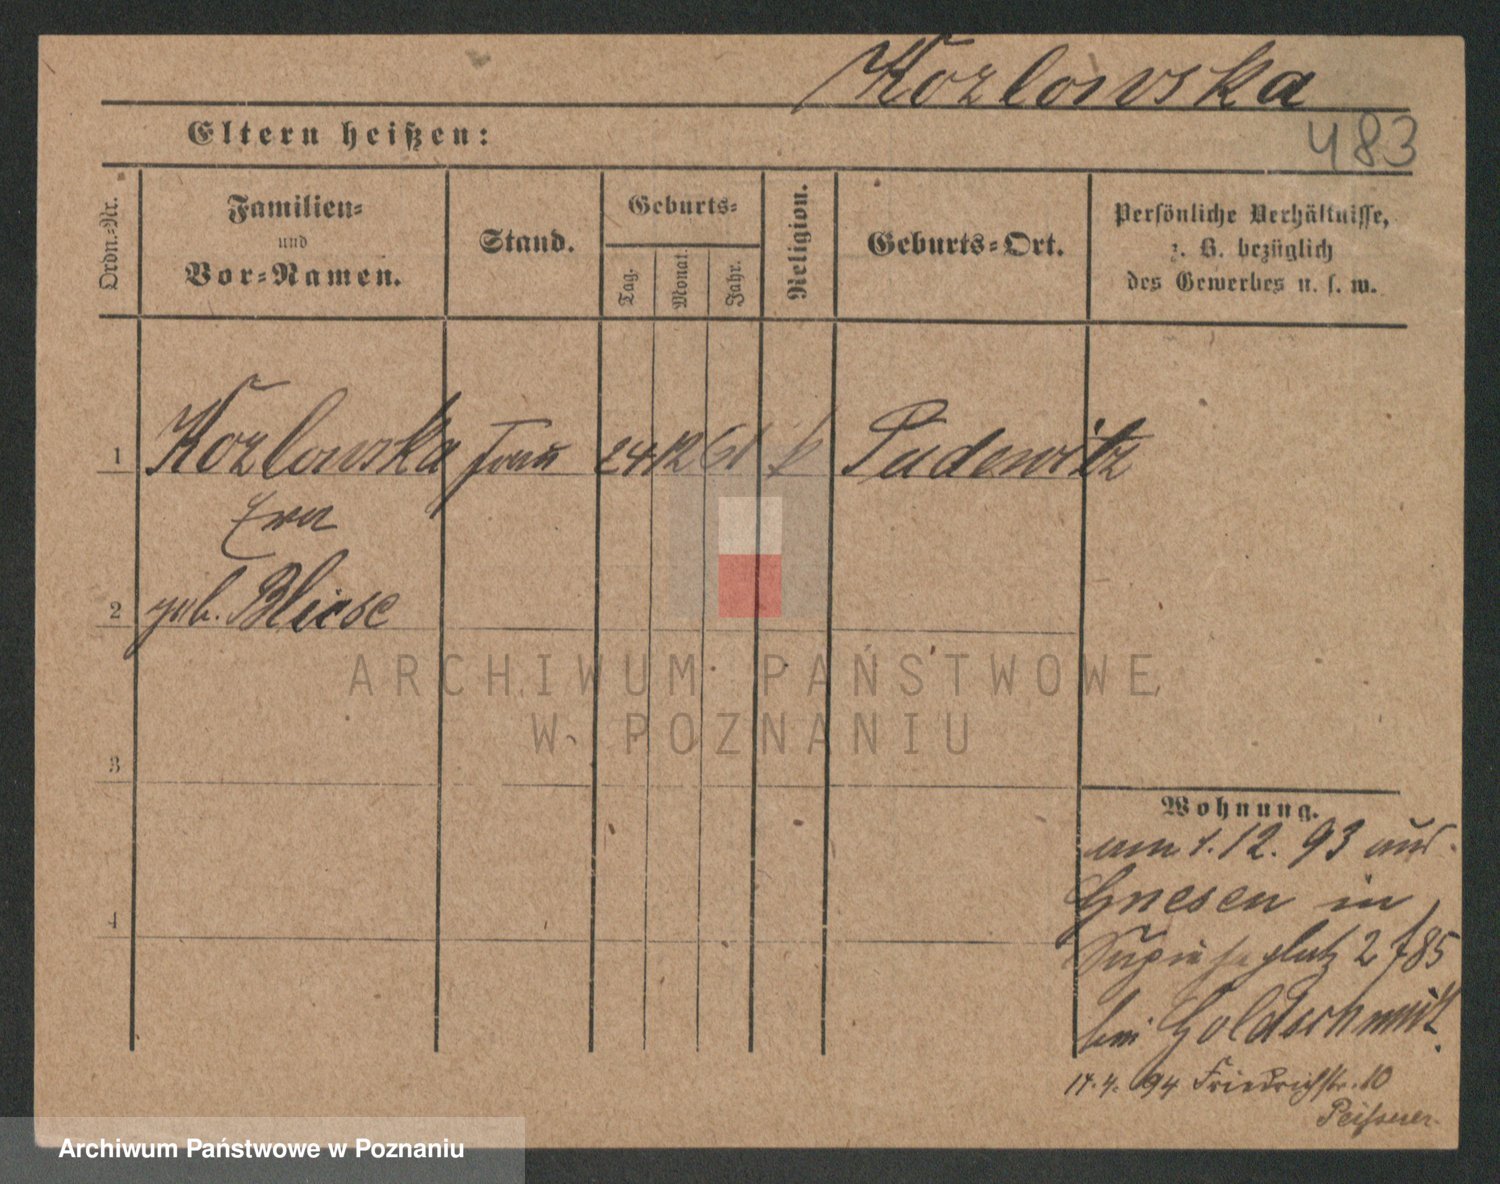 Kozlowska
Eltern heißen:
483
Ordn.-Nr.
Familien-
und
Vor-Namen.
Stand.
Geburts-
Tag.
Monat.
Jahr.
Religion.
Geburts-Ort.
Persönliche Verhältnisse,
z. B. bezüglich
des Gewerbes u. s. w.
1 Kozlowska Frau 24 12 61 k Pudewitz
Eva
2 geb. Bliese
3
4
ARCHIWUM PAŃSTWOWE
W POZNANIU
Wohnung.
am 1.12.93 aus
Gnesen in
Sapiehaplatz 2 f 85
bei Goldschmidt.
14.4.94 Friedrichstr. 10
Archiwum Państwowe w Poznaniu